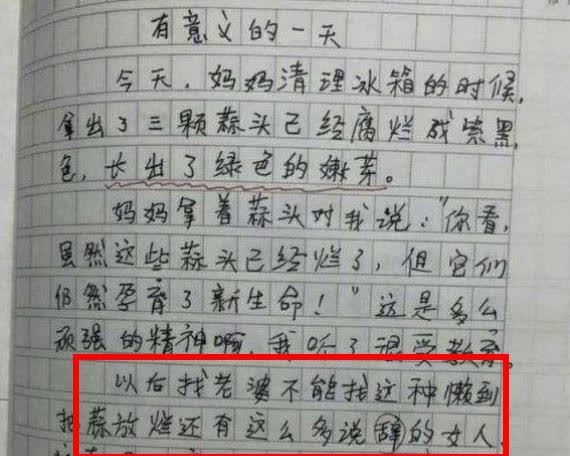 有意义的一天
今天，妈妈清理冰箱的时候，
拿出了三颗蒜头已经腐烂成紫黑
色，长出了绿色的嫩芽。
妈妈拿着蒜头对我说："你看，
虽然这些蒜头已经烂了，但它们
仍然孕育了新生命！"这是多么
顽强的精神啊，我听了很受教育。
以后找老婆不能找这种懒到
把蒜放烂还有这么多说辞的女人，